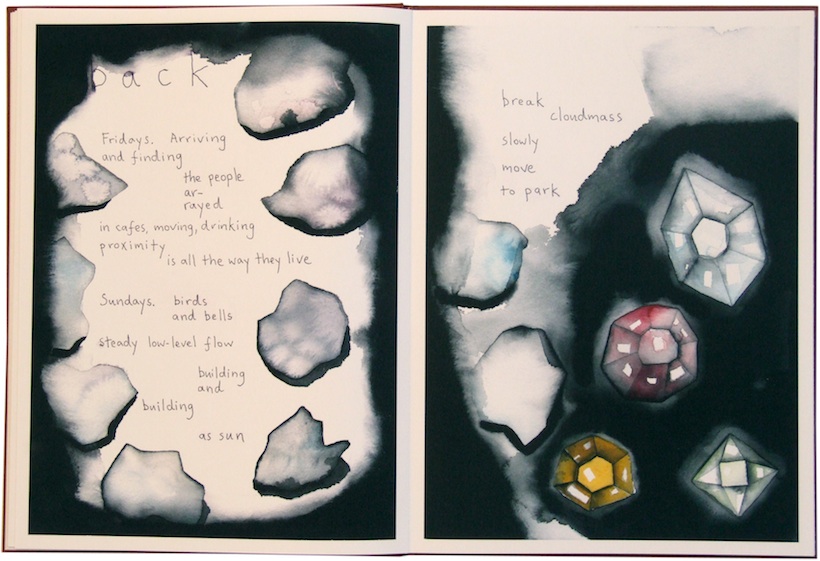 pack
Fridays. Arriving
and finding
the people
ar-
rayed
in cafes, moving, drinking
proximity
is all the way they live
Sundays. birds
and bells
steady low-level flow
building
and
building
as sun
break
cloudmass
slowly
move
to park